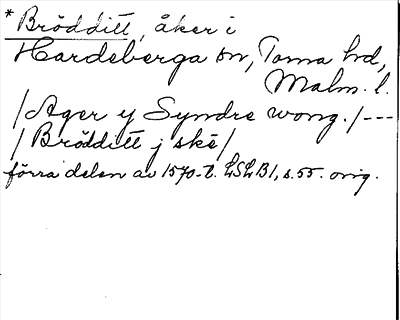 * Bröddítt, åker i
Hardeberga sn, Torna hd,
Malm. l.
/Ager y Syndre wong./---
/Bröddítt j ské/
förra delen av 1570-t. LSLB1, s. 55. orig.